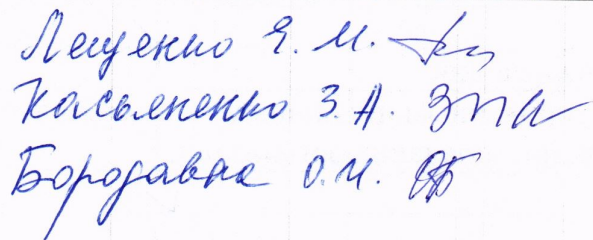 Лещенко Я. М.
Касьяненко З. А.
Бородавка О. И.